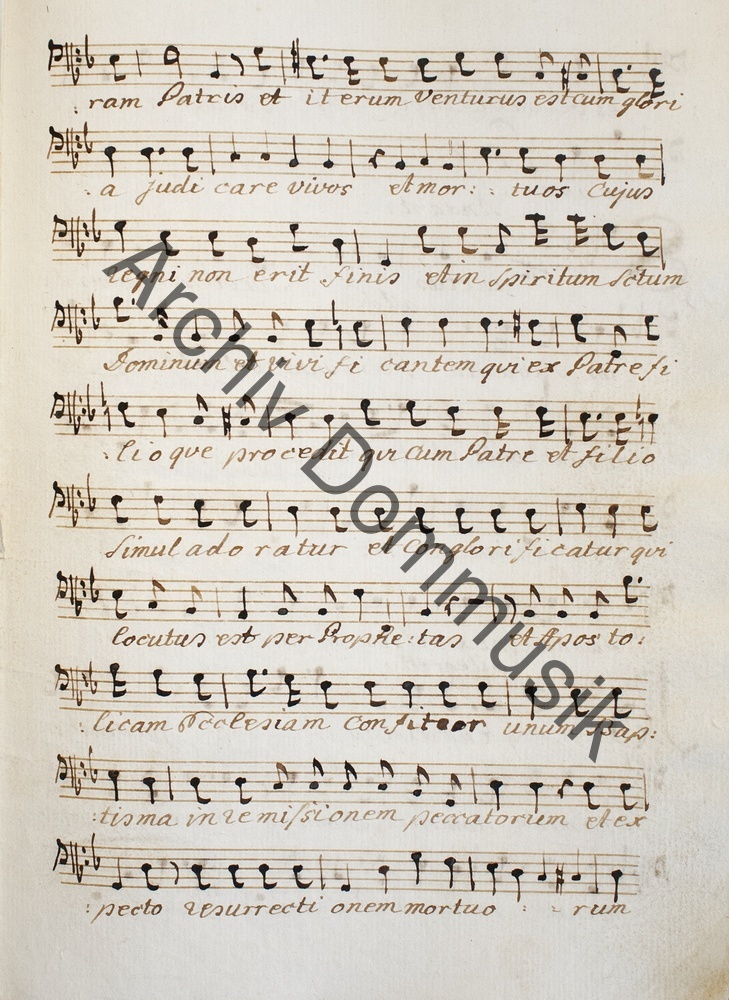 ram Patris et iterum Venturus est cum glori
: a judi care vivos et mor : : tuos Cujus
regni non erit finis et in Spiritum Sctum
Dominum et vivi fi cantem qui ex Patre fi
: lio que procedit qui Cum Patre et filio
Simul ado ratur et Conglori ficatur qui
locutus est per Prophe : tas et Apos to :
licam Ecclesiam Confiteor unum Bap :
: tisma in remissionem peccatorum et ex
: pecto resurrecti onem mortuo : : rum
Archiv Dommusik